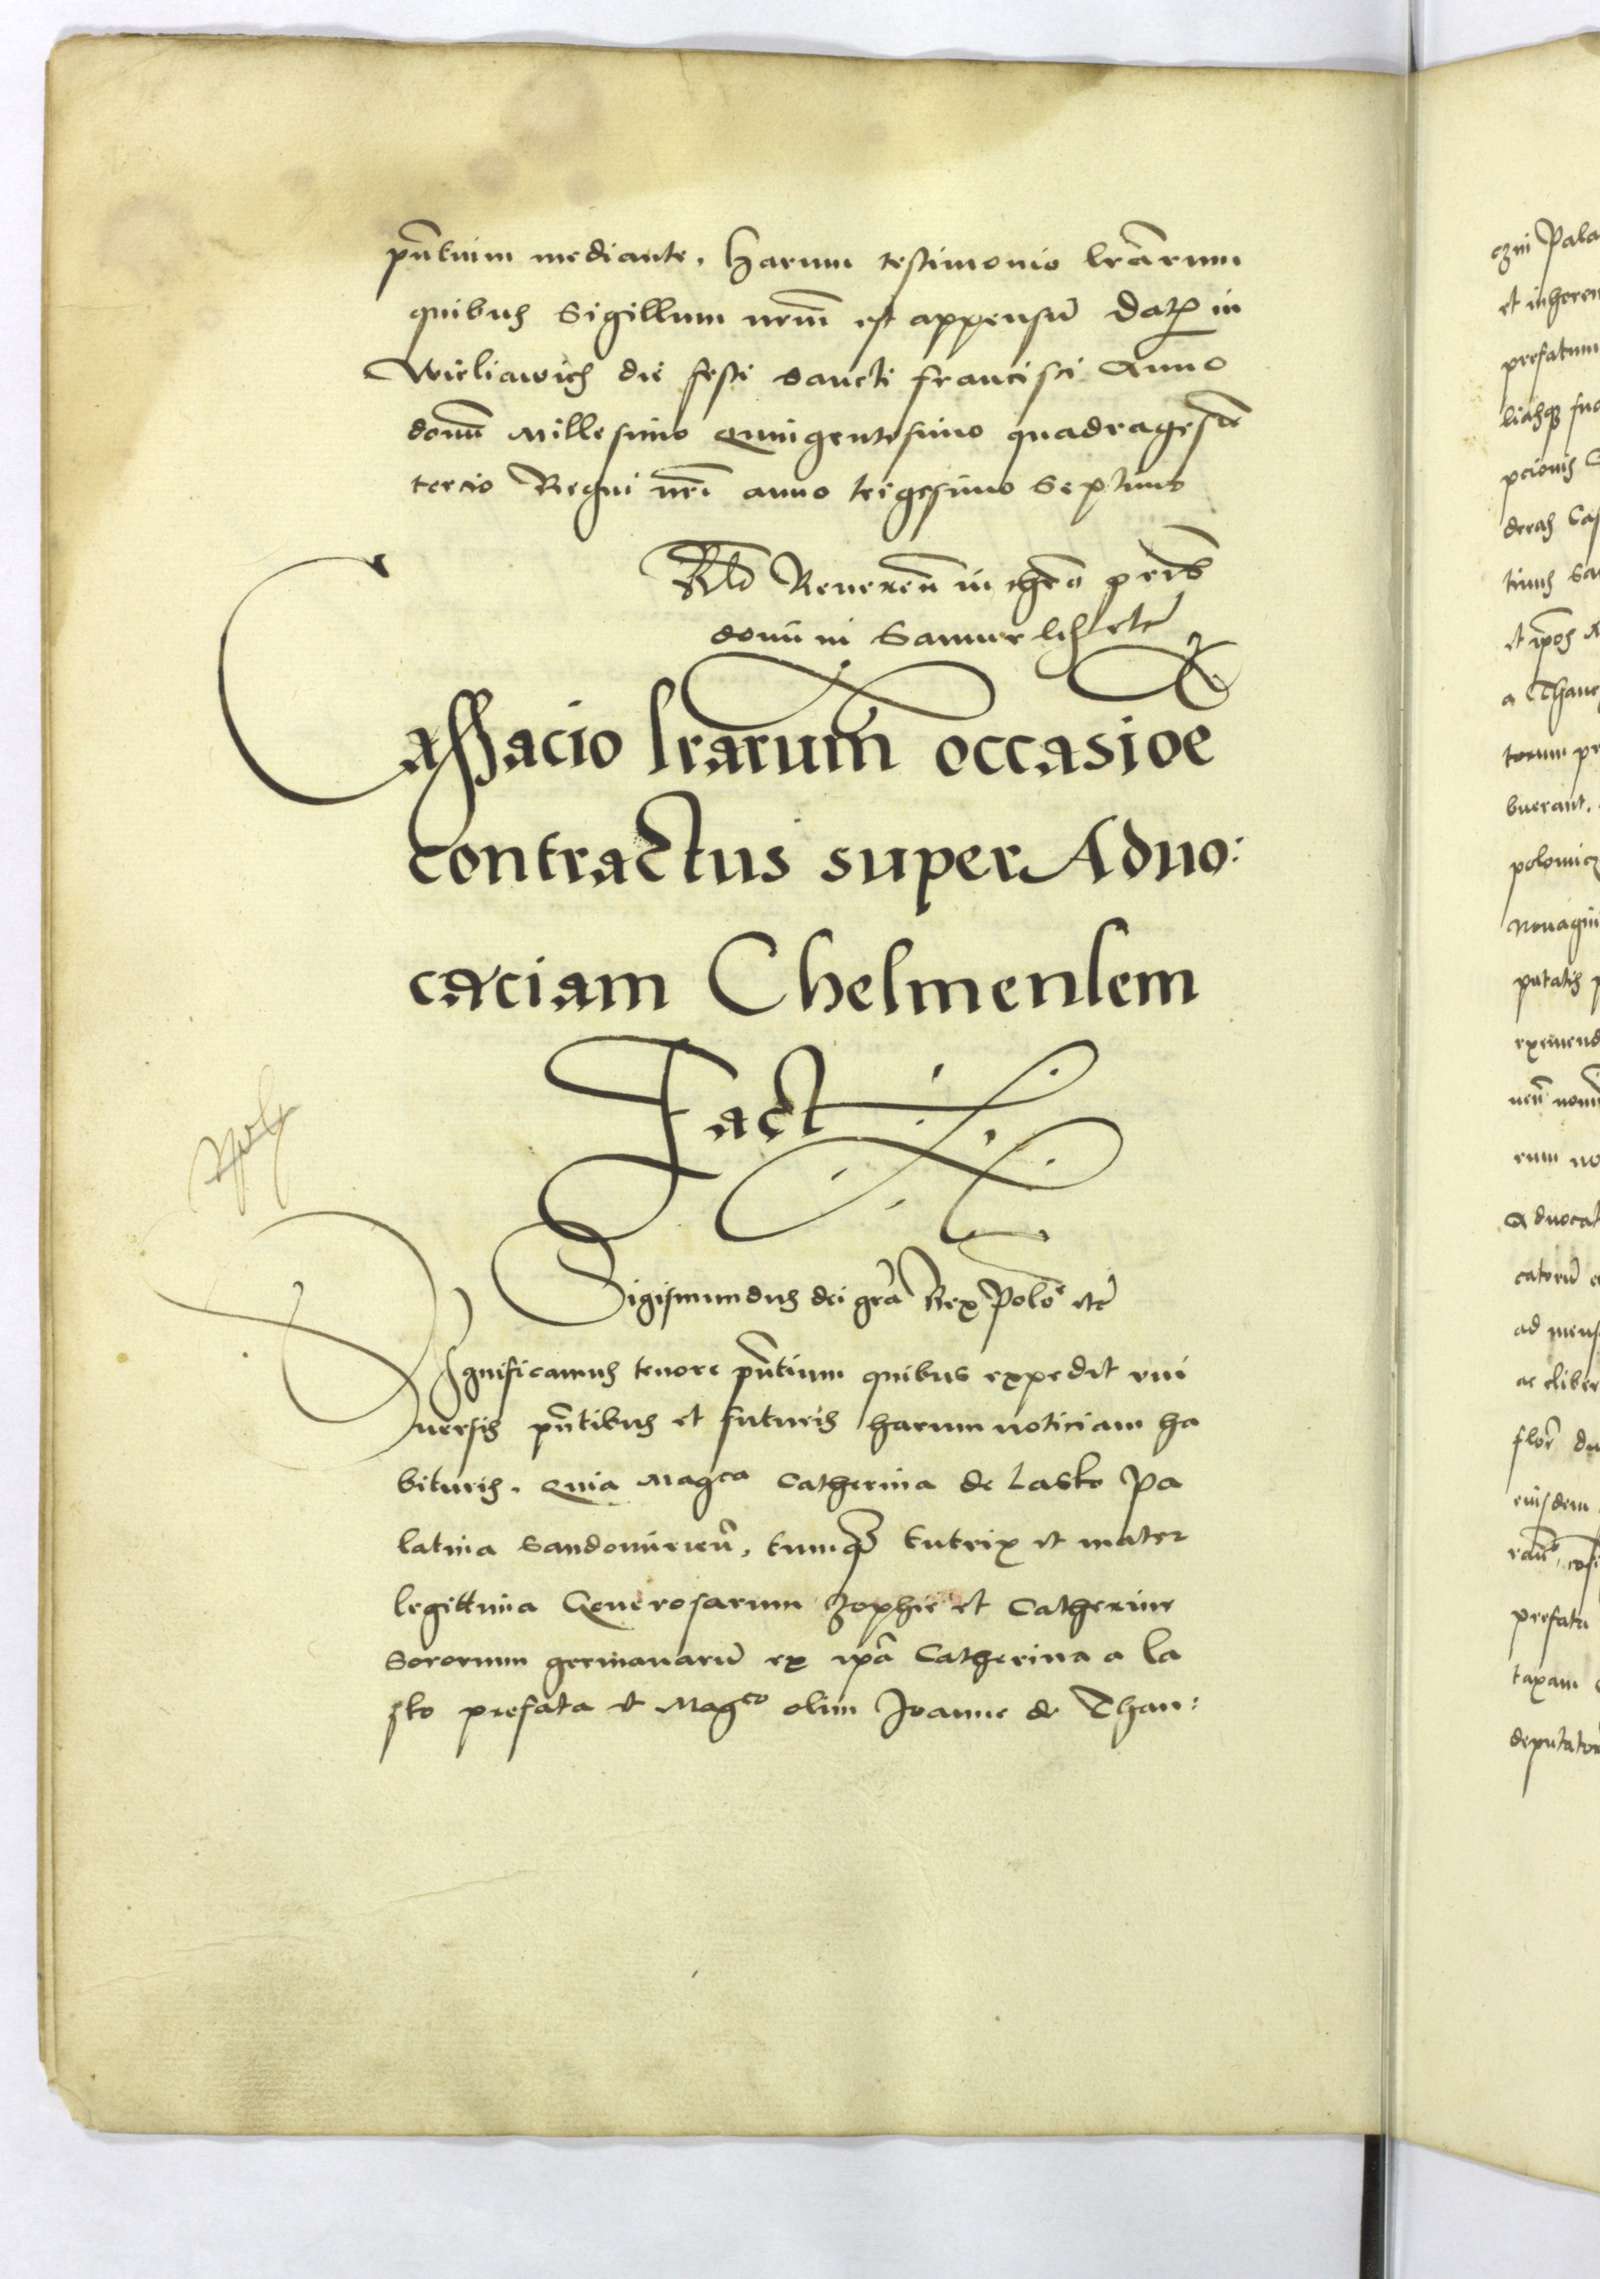 pñtium mediante. Harum testimonio lrãrum
quibus Sigillum nrm̃ est appensũ Datũ in
die festi sancti francisci Anno
domĩ Millesimo Quingentesimo quadragesĩo
tercio Regni nrĩ anno trigesimo Septimo
Rlo Reueren̄ in chrõ pris
domĩni Samuelis etc̃
Cassacio lrarum̃ occasioe
contractus super Aduo:
caciam Chelmensem
Fact
Sigismundus dei grã Rex Polo͠e etc̃
Significamus tenore pñtium quibus expedit vni
uersis pñtibus et futuris harum noticiam ha
bituris. Quia Magca Catherina de Lasko Pa
latina Sandomirien̄, tumq̃ tutrix et mater
legittima Generosarum Zophie et Catherine
Sororum germanarũ ex ip̃a Catherina a La
sko prefata et Magco olim Joanne de Than:
czni Pala
et inheren
prefatum
liasq̃ suc
pcionis
deras Cas
tinus San
et ip̃os
a Thanc
torum pr
buerant.
polomicz
Nouagin
putatis p
eximend
rum no
Aduocat
catorũ e
ad mens
ac liber
flor̃ du
eiusdem
prefata
taxam
deputator